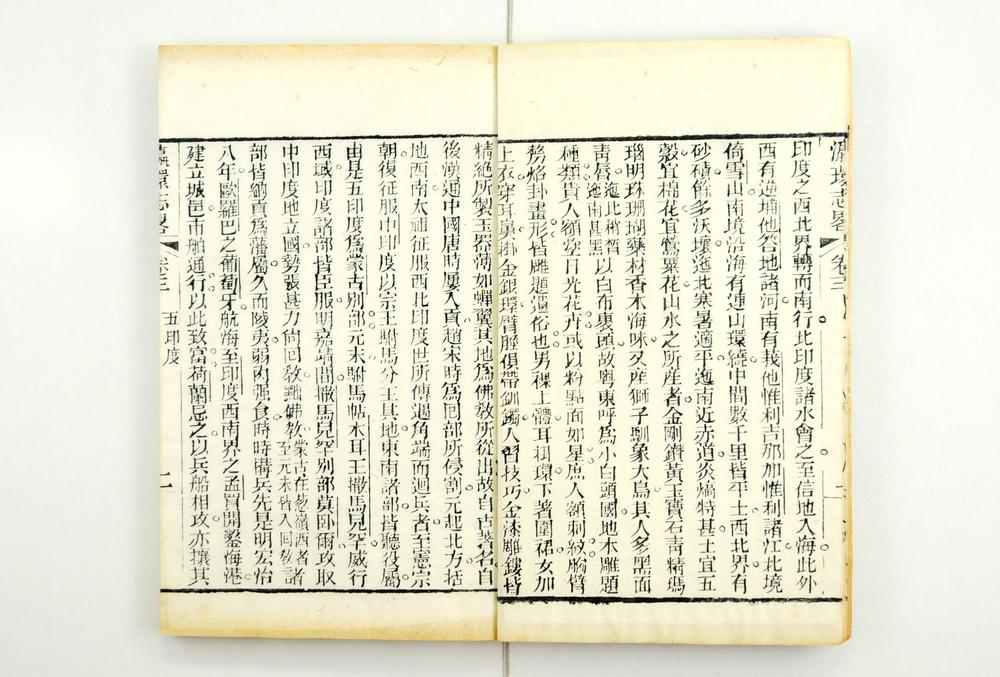 瀛環志畧 卷三
印度之西北界轉而南行北印度諸水會之至信地入海此外
西有達埔他答地諸河南有莪他惟利吉那加惟利諸江北境
倚雪山南境沿海有連山環繞中間數千里皆平土西北界有
砂磧餘多沃壤迤北寒暑適平迤南近赤道炎熇特甚土宜五
穀宜棉花宜鶯粟花山水之所產者金剛鑽黃玉寶石青精瑪
瑙明珠珊瑚藥材香木海味又產獅子馴象大鳥其人多黑面
青唇迤北稍晳迤南甚黑以白布裹頭故粵東呼為小白頭國地本雕題
種類貴人額塗日光花卉或以粉點面如星庶人額刺紋胸臂
務烙卦畫形皆雕題遺俗也男裸上體耳垂環下著圍裙女加
上衣穿耳鼻掛金銀環臂脛俱帶釧鐲人習技巧金漆雕鏤皆
精絕所製玉器薄如蟬翼其地為佛教所從出故自古著名自
後漢通中國唐時屢入貢趙宋時為回部所侵割元起北方括
地西南太祖征服西北印度世所傳遇角端而迴兵者至憲宗
朝復征服中印度以宗王駙馬分王其地東南諸部皆聽役屬
由是五印度為蒙古別部元末駙馬帖木耳王撒馬兒罕威行
西域印度諸部皆臣服明嘉靖間撒馬兒罕別部莫臥爾攻取
中印度地立國勢張甚力尙回敎黜佛教蒙古在蔥嶺西者至元末皆入回敎諸
部皆納貢為藩屬久而陵夷弱肉强食時時構兵先是明宏治
八年歐羅巴之葡萄牙航海至印度西南界之孟買開鑿海港
建立城邑市舶通行以此致富荷蘭忌之以兵船相攻亦攘其
瀛環志畧 卷三 五印度 七